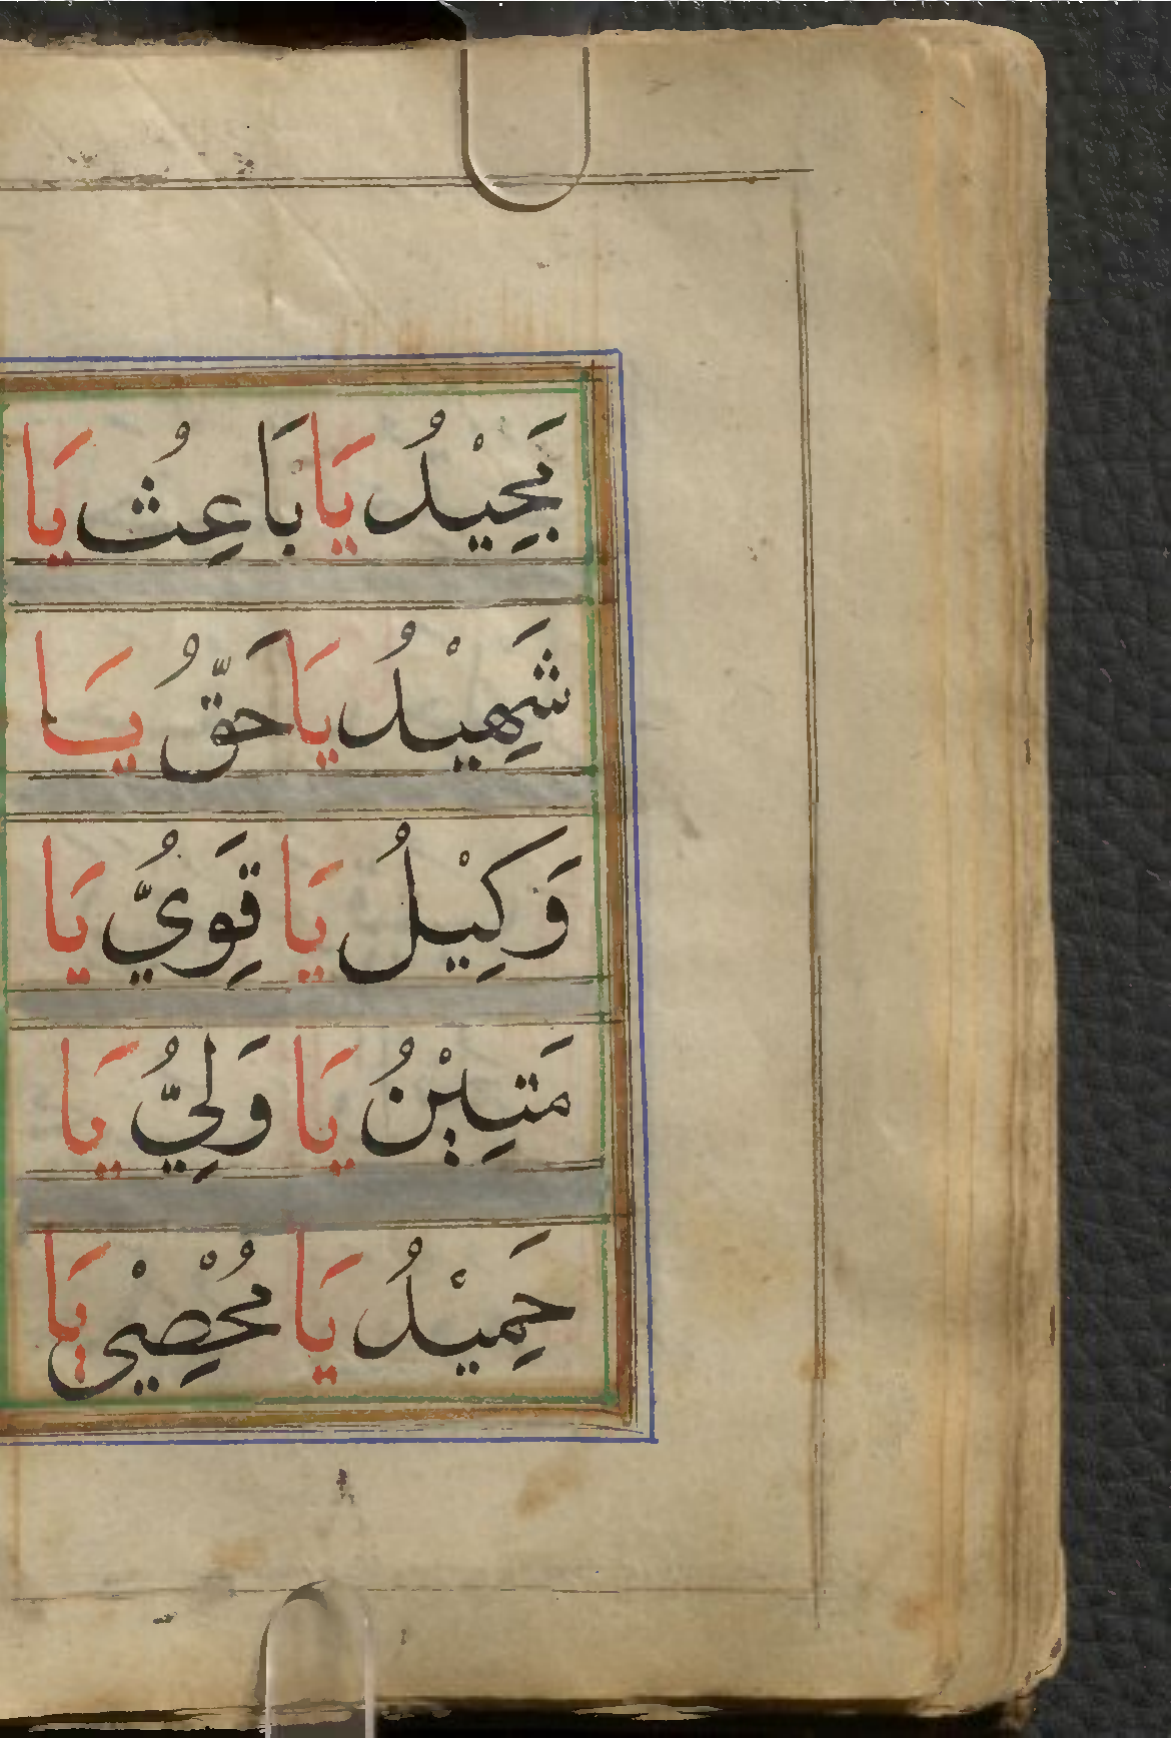 مَجِيْدُ يَا بَاعِثُ يَا
شَهِيْدُ يَا حَقُّ يَا
وَكِيْلُ يَا قَوِيُّ يَا
مَتِيْنُ يَا وَلِيُّ يَا
حَمِيْدُ يَا مُحْصِيْ يَا